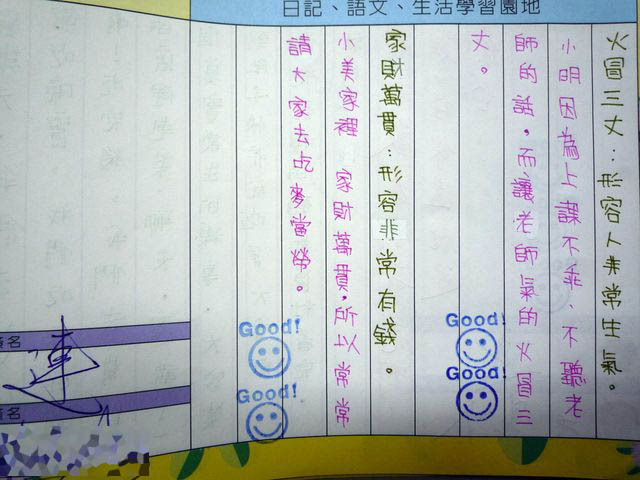 日記、語文、生活學習園地
火冒三丈：形容人非常生氣。
小明因為上課不乖、不聽老
師的話，而讓老師氣的火冒三
丈。
家財萬貫：形容非常有錢。
小美家裡家財萬貫，所以常常
請大家去吃麥當勞。
Good!
Good!
Good!
Good!
簽名
簽名